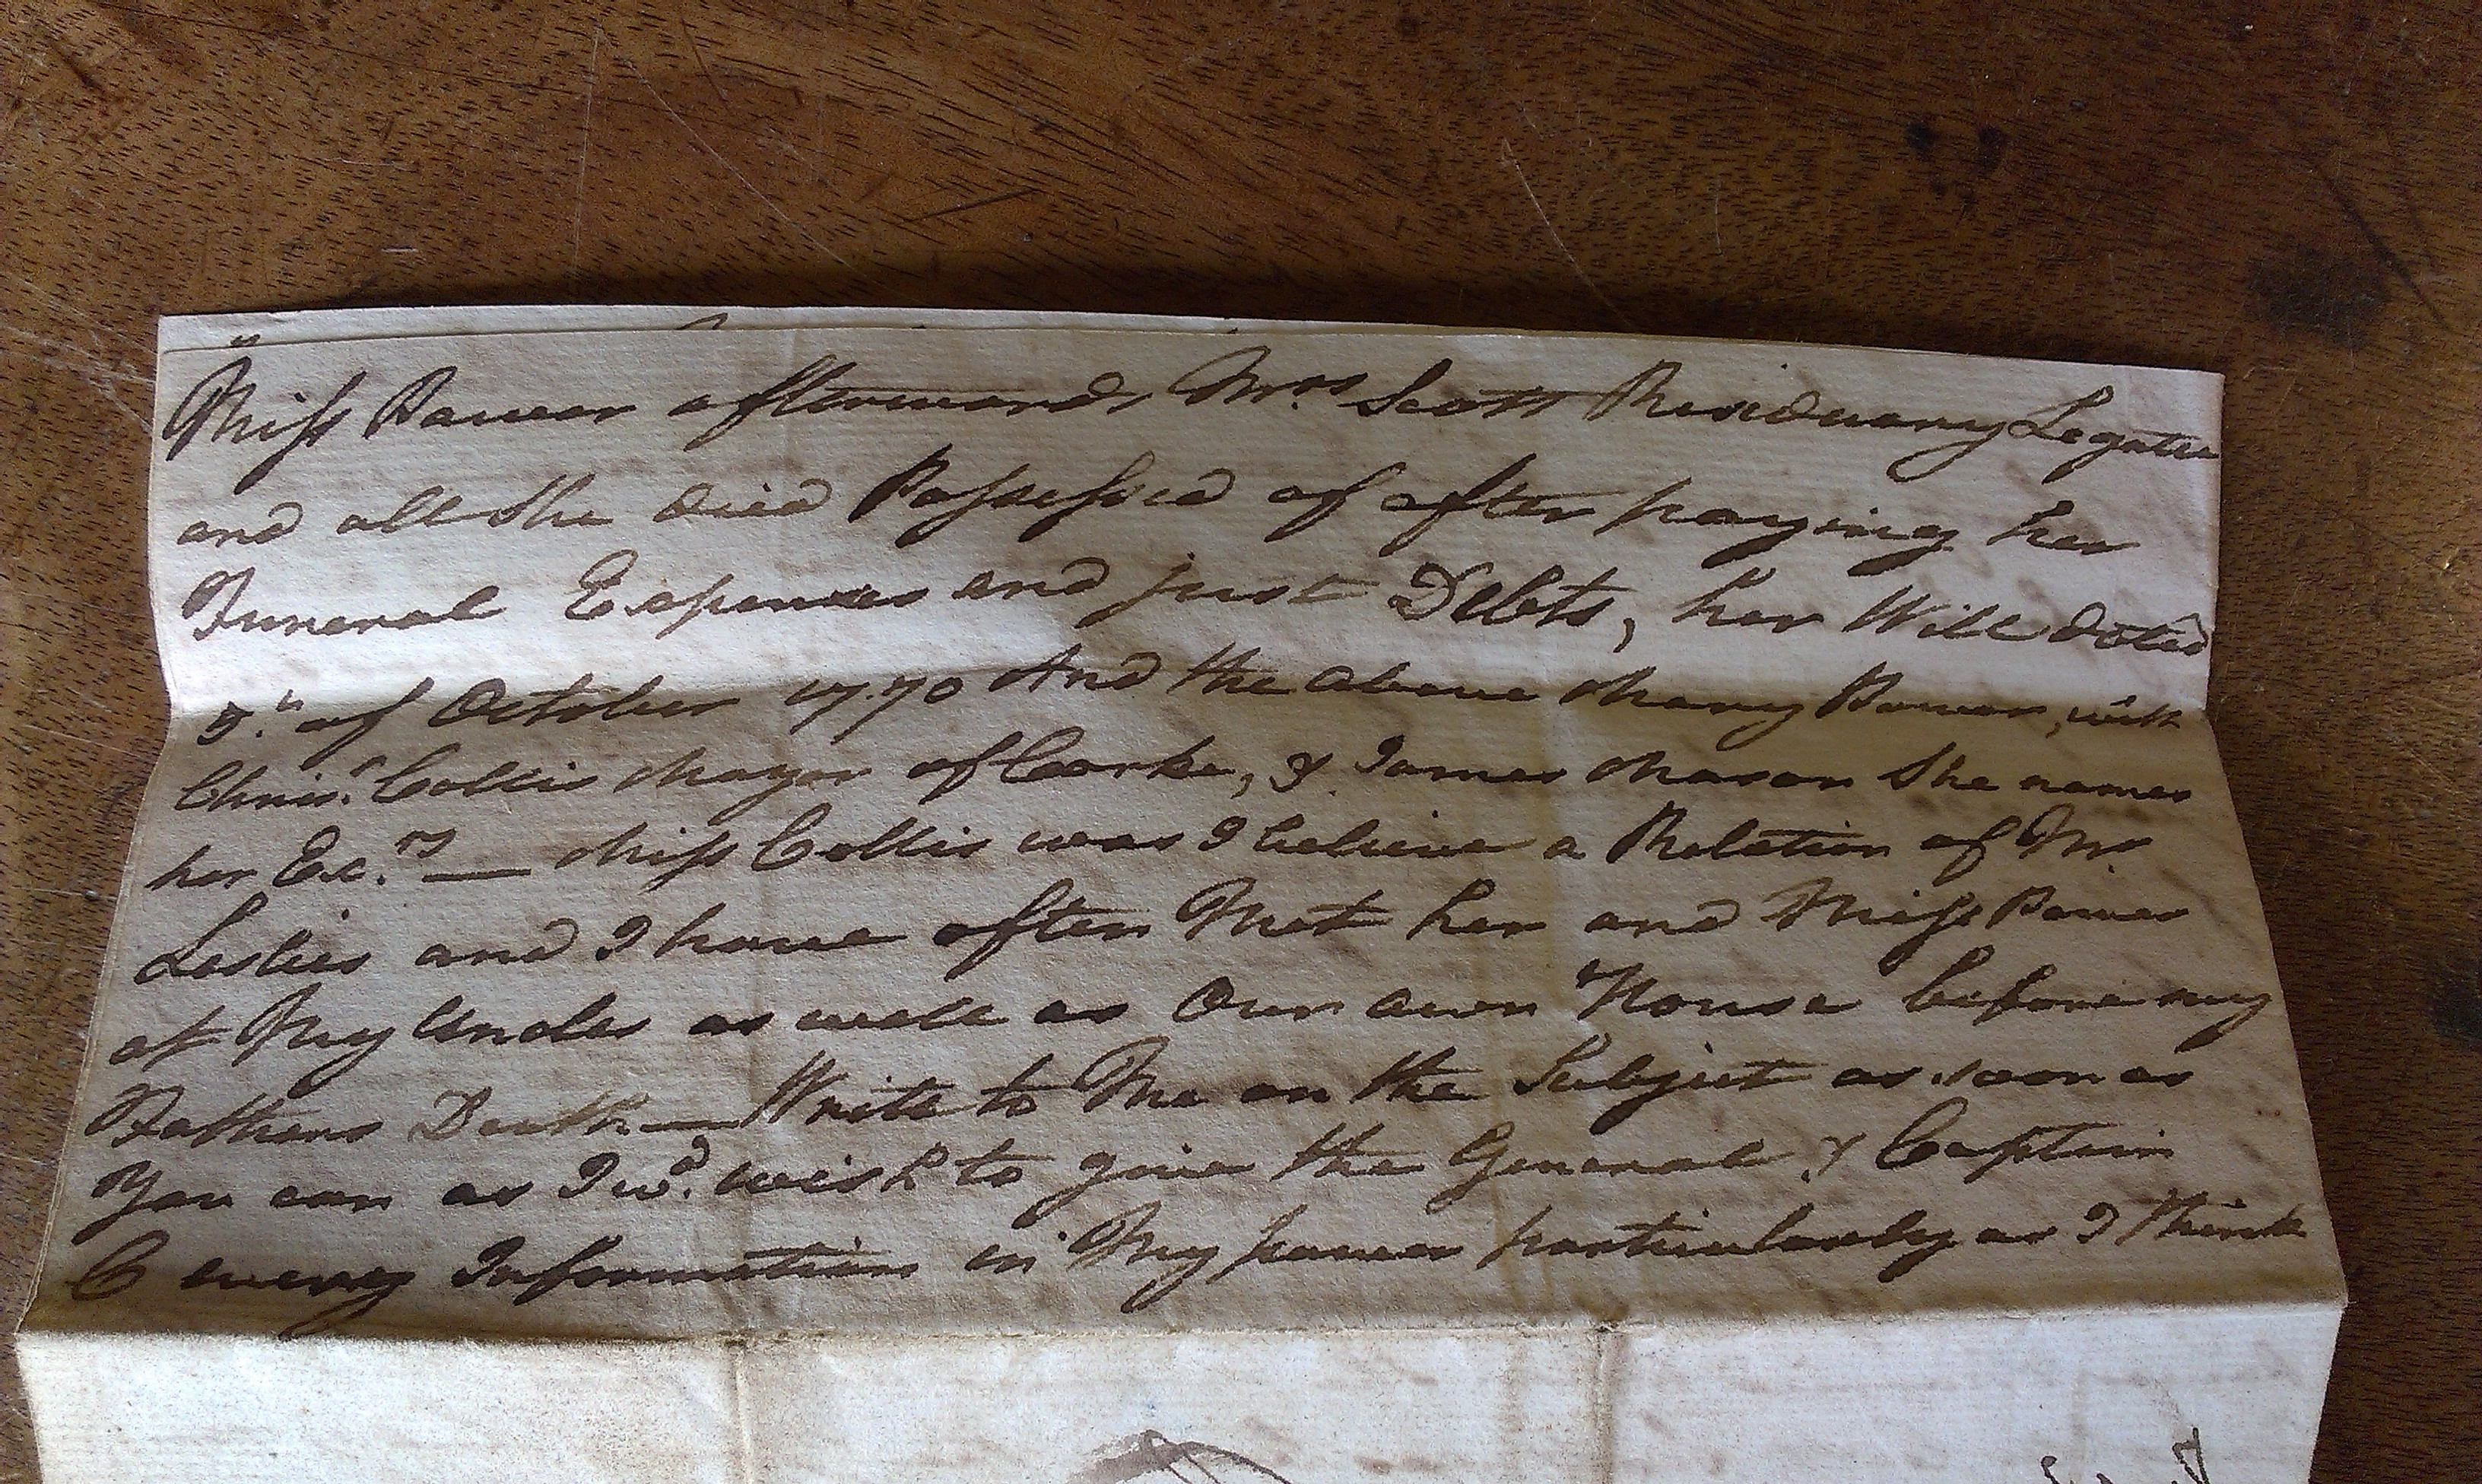 Miss Power afterwards Mrs Scott Residuary Legatee
and all She died Possessed of after paying her
Funeral Expenses and just Debts, her Will dated
5.th of October 1770 And the above Mary Power, with
Chrisr. Collis Mayor of Corke, & James Mason She names
her Ex.rs — Miss Collis was I believe a Relation of Mr
Leslies and I have often Met her and Miss Power
at My Uncles as well as Our own House before my
Fathers Death — Write to Me on the Subject as soon as
You can as I wd. wish to give the General & Captain
C every Information in My power particularly as I think